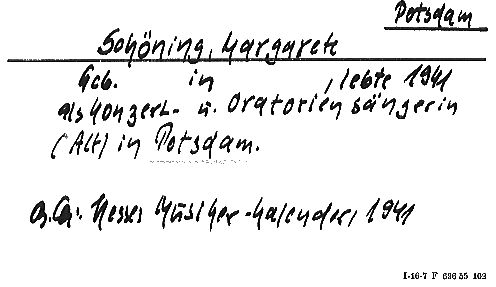 Potsdam
Schöning, Margarete
Geb. in , lebte 1941
als Konzert- u. Oratoriensängerin
(Alt) in Potsdam.
Hesses Musiker-Kalender, 1941
I-16-7 F 636 55 102